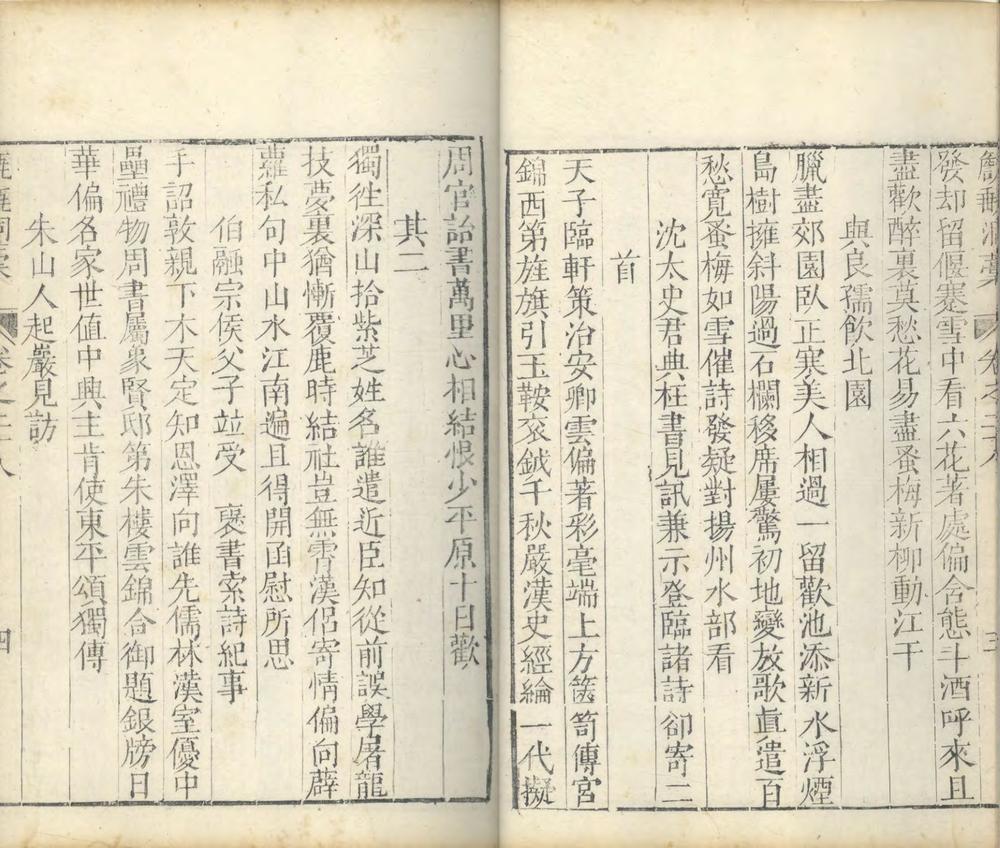 發却留偃蹇雪中看六花著處偏含態斗酒呼來且
盡歡醉裏莫愁花易盡蚤梅新柳動江干
與良孺飲北園
臘盡郊園臥正寒美人相過一留歡池添新水浮煙
島樹擁斜陽過石欄移席屢驚初地變放歌直遣百
愁寬蚤梅如雪催詩發疑對揚州水部看
沈太史君典枉書見訊兼示登臨諸詩卻寄二
首
天子臨軒策治安卿雲偏著彩毫端上方篋笥傳宮
錦西第旌旗引玉鞍衮鉞千秋嚴漢史經綸一代擬
周官詒書萬里心相結恨少平原十日歡
其二
獨徃深山拾紫芝姓名誰遣近臣知從前誤學屠龍
技夢裏猶慚覆鹿時結社豈無霄漢侶寄情偏向薜
蘿私句中山水江南遍且得開函慰所思
伯融宗侯父子竝受褒書索詩紀事
手詔敦親下木天定知恩澤向誰先儒林漢室優中
壘禮物周書屬象賢邸第朱樓雲錦合御題銀牓日
華偏各家世值中興主肯使東平頌獨傳
朱山人起嚴見訪
四